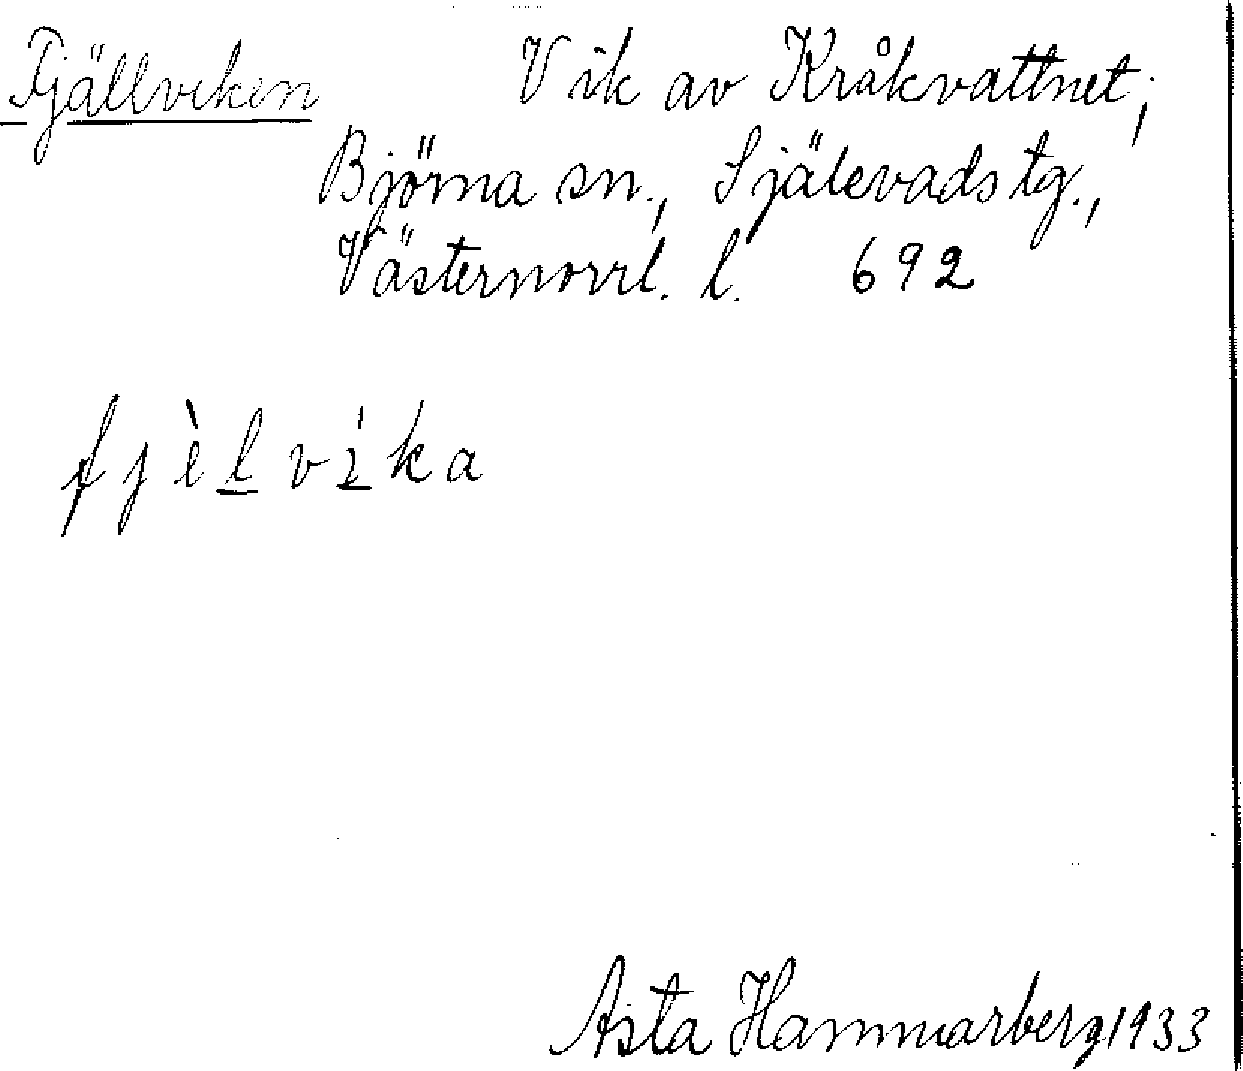 Fjällviken Vik av Kråkvattnet;
Björna sn., Själevads tg.,
Västernorrl. l. 692
fjèlvíka
Asta Hammarberg 1933